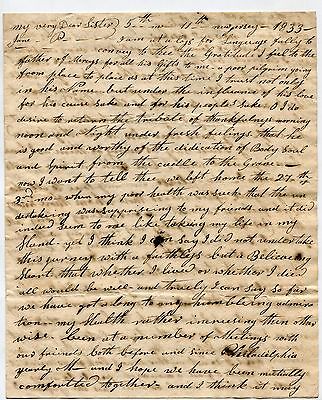 my very Dear Sister 5th mo 11th 1833
I am at a loss for Language fully to
convey to thee the Gratitude I feel to the
father of Mercys for all his Gifts to me a poor pilgrim going
from place to place as at this time I trust not only
in his Name but under the influence of his love
for his cause sake and for his people's Sake O I do
desire to return the tribute of thankfulness morning
noon and Night under fresh feelings that he
is good and worthy of the dedication of Body Soul
and Spirit from the cradle to the Grave
now I want to tell thee we left home the 27th of
3d mo. when my poor health was such that the un
dertaking was surprising to my friends and it did
indeed seem to me like taking my life in my
Hand yet I think I can Say I did not undertake
this journey with a faithless but a Believing
Heart that whether I lived or whether I died
all would be well and truely I can Say so far
we have got along to my humbling admira
tion my Health rather increasing than other
wise. been at a number of Meetings with
our friends both before and since Philadelphia
yearly M and I hope we have been mutually
comforted together and I think it may